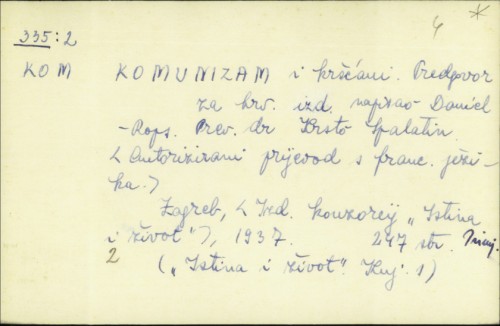 335:2
KOM KOMUNIZAM i kršćani. Predgovor
za hrv. izd. napisao Daniel
-Rops. Prev. dr Krsto Spalatin.
<Autorizirani prijevod s franc. jezi-
ka.>
Zagreb, <Izd. konzorcij „Istina
i život“>, 1937. 247 str.
2 („Istina i život“. Knj. 1)